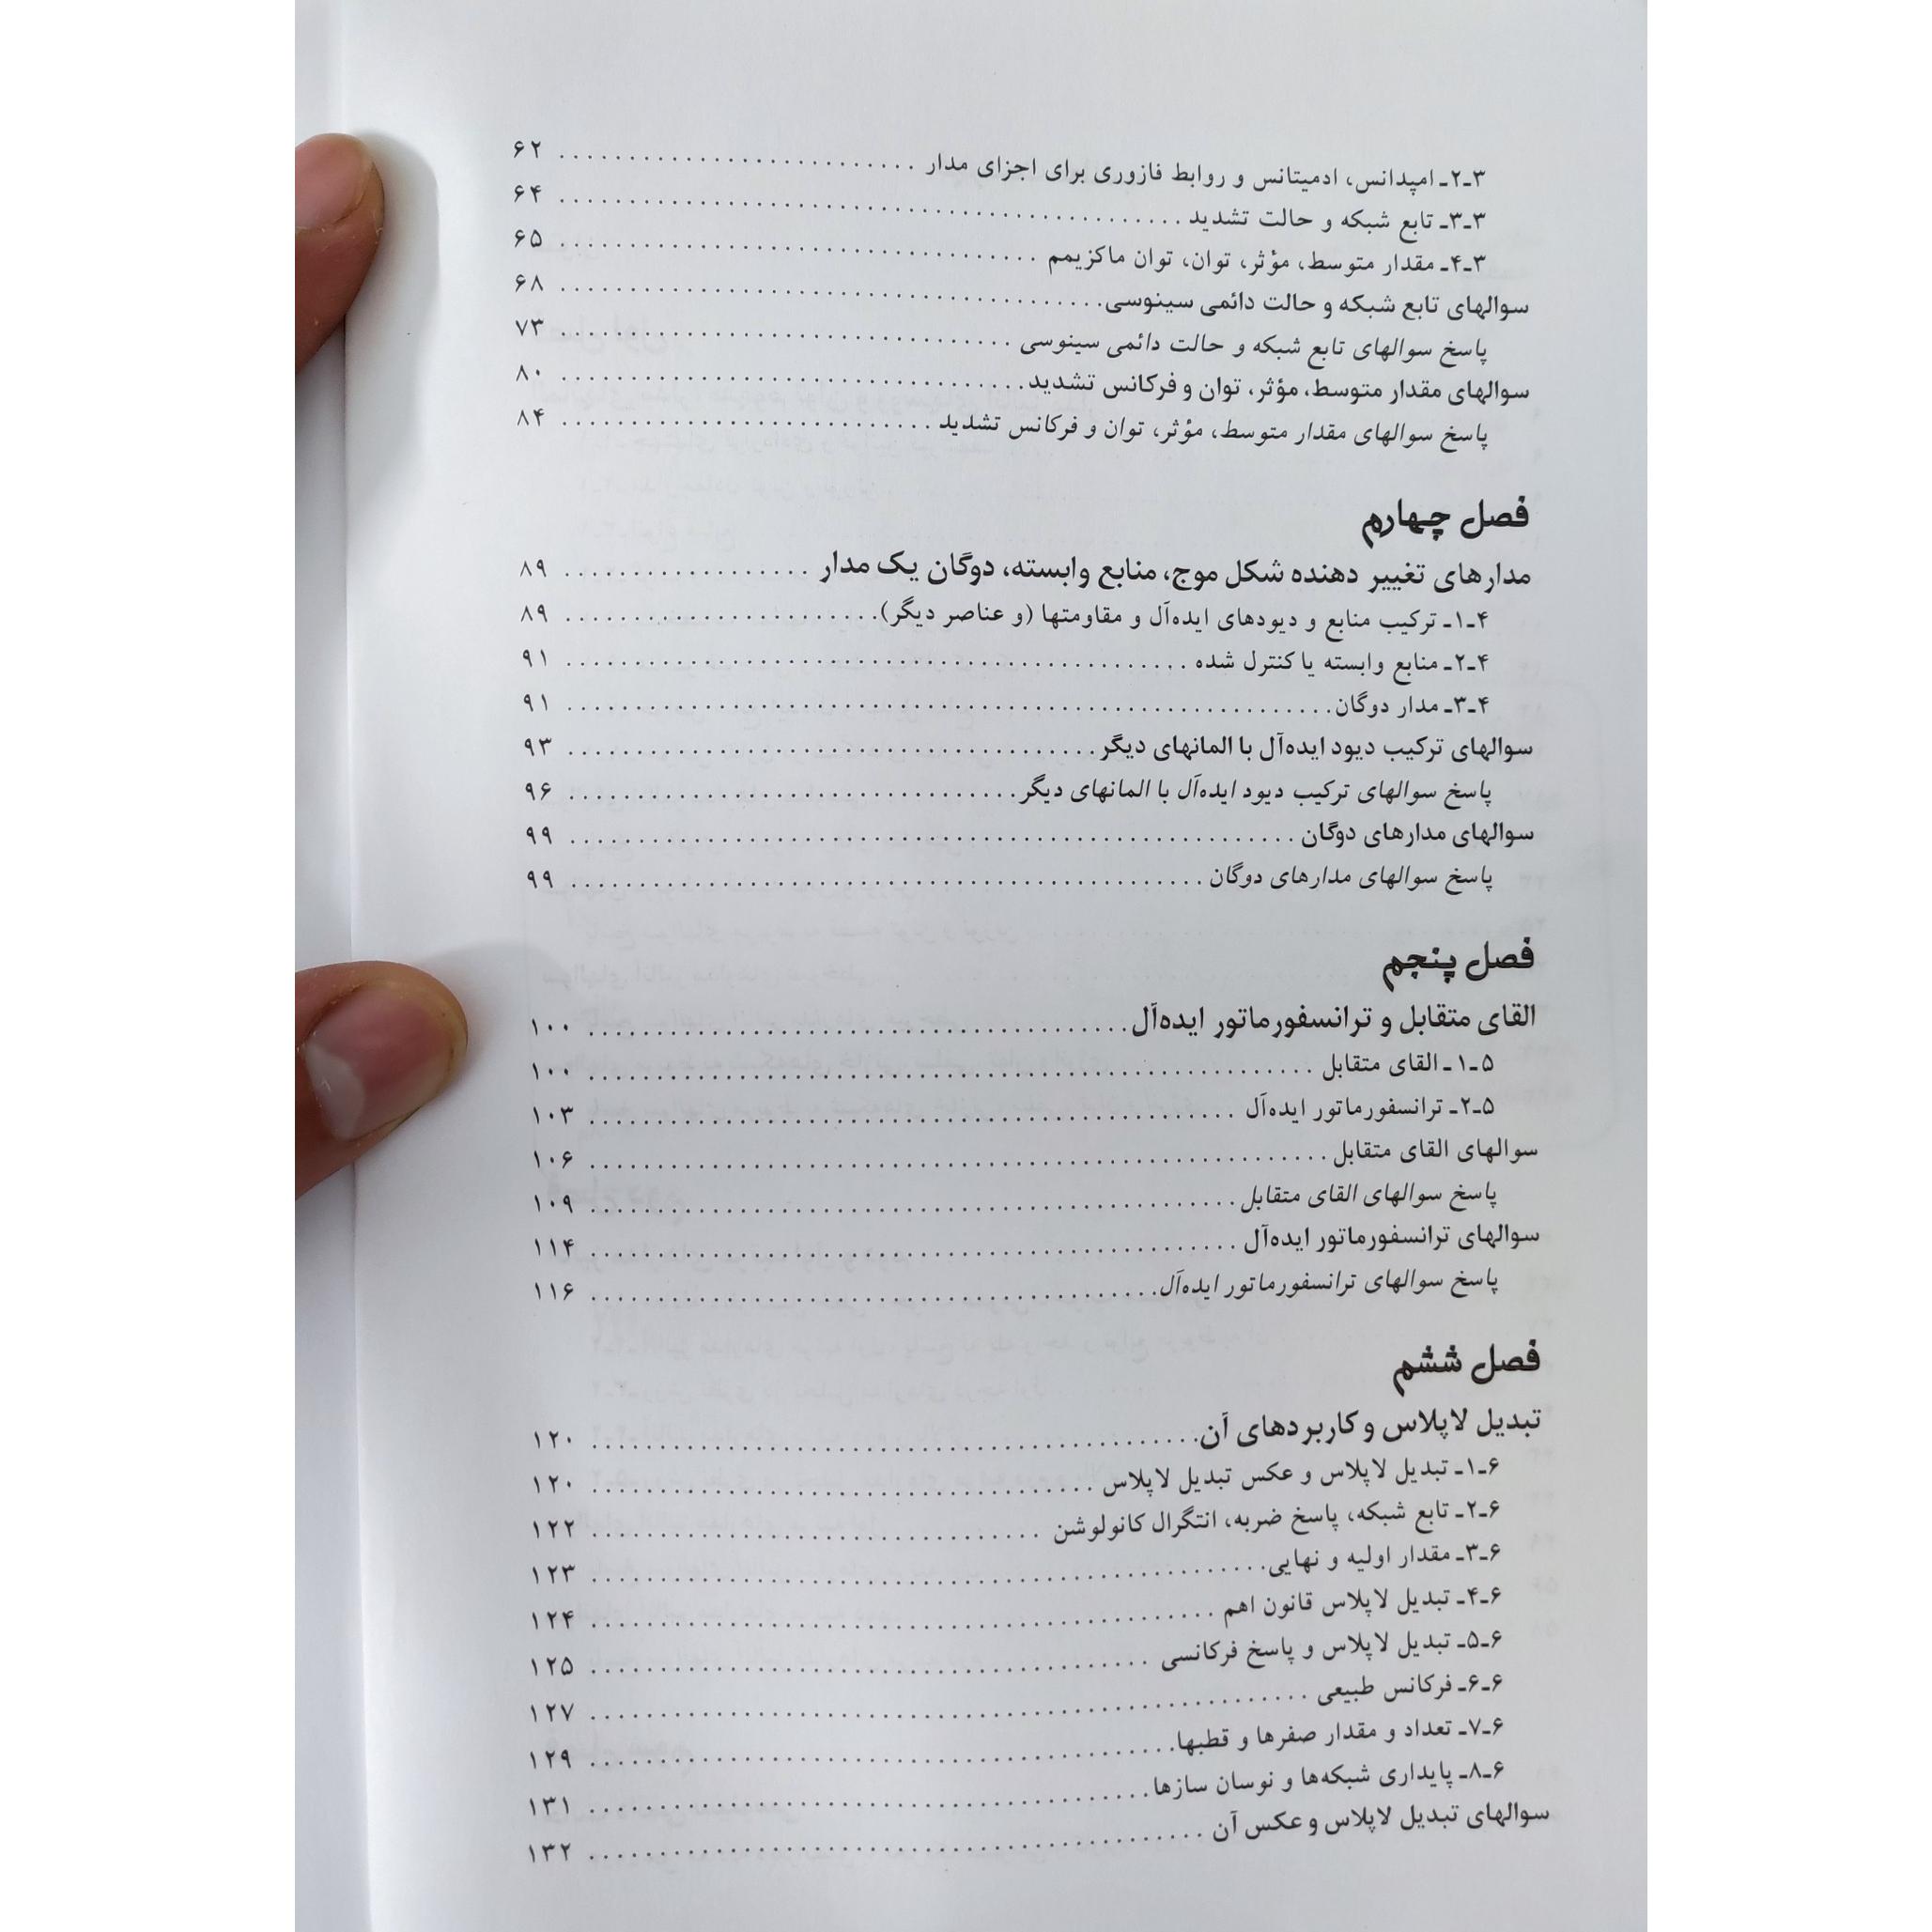 ۳ـ۲ـ امپدانس، ادمیتانس و روابط فازوری برای اجزای مدار . . . . . . . . . . . . . . . . . . . . . . . . . . ۶۲
۳ـ۳ـ تابع شبکه و حالت تشدید . . . . . . . . . . . . . . . . . . . . . . . . . . . . . . . . . . . . . . . . . . . . . ۶۴
۳ـ۴ـ مقدار متوسط، مؤثر، توان، توان ماکزیمم . . . . . . . . . . . . . . . . . . . . . . . . . . . . . . . . . . ۶۵
سوالهای تابع شبکه و حالت دائمی سینوسی . . . . . . . . . . . . . . . . . . . . . . . . . . . . . . . . . . . . . . . ۶۸
پاسخ سوالهای تابع شبکه و حالت دائمی سینوسی . . . . . . . . . . . . . . . . . . . . . . . . . . . . . . . . ۷۳
سوالهای مقدار متوسط، مؤثر، توان و فرکانس تشدید . . . . . . . . . . . . . . . . . . . . . . . . . . . . . . . . . ۸۰
پاسخ سوالهای مقدار متوسط، مؤثر، توان و فرکانس تشدید . . . . . . . . . . . . . . . . . . . . . . . . . . ۸۴
فصل چهارم
مدارهای تغییر دهنده شکل موج، منابع وابسته، دوگان یک مدار . . . . . . . . . . . . . . . . . . ۸۹
۴ـ۱ـ ترکیب منابع و دیودهای ایده‌آل و مقاومتها (و عناصر دیگر) . . . . . . . . . . . . . . . . . . . . . . . ۸۹
۴ـ۲ـ منابع وابسته یا کنترل شده . . . . . . . . . . . . . . . . . . . . . . . . . . . . . . . . . . . . . . . . . . . . . ۹۱
۴ـ۳ـ مدار دوگان . . . . . . . . . . . . . . . . . . . . . . . . . . . . . . . . . . . . . . . . . . . . . . . . . . . . . . . ۹۱
سوالهای ترکیب دیود ایده‌آل با المانهای دیگر . . . . . . . . . . . . . . . . . . . . . . . . . . . . . . . . . . . . . . ۹۳
پاسخ سوالهای ترکیب دیود ایده‌آل با المانهای دیگر . . . . . . . . . . . . . . . . . . . . . . . . . . . . . . . . ۹۶
سوالهای مدارهای دوگان . . . . . . . . . . . . . . . . . . . . . . . . . . . . . . . . . . . . . . . . . . . . . . . . . . . . ۹۹
پاسخ سوالهای مدارهای دوگان . . . . . . . . . . . . . . . . . . . . . . . . . . . . . . . . . . . . . . . . . . . . . . ۹۹
فصل پنجم
القای متقابل و ترانسفورماتور ایده‌آل . . . . . . . . . . . . . . . . . . . . . . . . . . . . . . . . . . . . . . . ۱۰۰
۵ـ۱ـ القای متقابل . . . . . . . . . . . . . . . . . . . . . . . . . . . . . . . . . . . . . . . . . . . . . . . . . . . . ۱۰۰
۵ـ۲ـ ترانسفورماتور ایده‌آل . . . . . . . . . . . . . . . . . . . . . . . . . . . . . . . . . . . . . . . . . . . . . . . ۱۰۳
سوالهای القای متقابل . . . . . . . . . . . . . . . . . . . . . . . . . . . . . . . . . . . . . . . . . . . . . . . . . . . . . ۱۰۶
پاسخ سوالهای القای متقابل . . . . . . . . . . . . . . . . . . . . . . . . . . . . . . . . . . . . . . . . . . . . . . . ۱۰۹
سوالهای ترانسفورماتور ایده‌آل . . . . . . . . . . . . . . . . . . . . . . . . . . . . . . . . . . . . . . . . . . . . . . . ۱۱۴
پاسخ سوالهای ترانسفورماتور ایده‌آل . . . . . . . . . . . . . . . . . . . . . . . . . . . . . . . . . . . . . . . . . ۱۱۶
فصل ششم
تبدیل لاپلاس و کاربردهای آن . . . . . . . . . . . . . . . . . . . . . . . . . . . . . . . . . . . . . . . . . . . . ۱۲۰
۶ـ۱ـ تبدیل لاپلاس و عکس تبدیل لاپلاس . . . . . . . . . . . . . . . . . . . . . . . . . . . . . . . . . . . . . ۱۲۰
۶ـ۲ـ تابع شبکه، پاسخ ضربه، انتگرال کانولوشن . . . . . . . . . . . . . . . . . . . . . . . . . . . . . . . . . ۱۲۲
۶ـ۳ـ مقدار اولیه و نهایی . . . . . . . . . . . . . . . . . . . . . . . . . . . . . . . . . . . . . . . . . . . . . . . . . ۱۲۳
۶ـ۴ـ تبدیل لاپلاس قانون اهم . . . . . . . . . . . . . . . . . . . . . . . . . . . . . . . . . . . . . . . . . . . . . ۱۲۴
۶ـ۵ـ تبدیل لاپلاس و پاسخ فرکانسی . . . . . . . . . . . . . . . . . . . . . . . . . . . . . . . . . . . . . . . . . ۱۲۵
۶ـ۶ـ فرکانس طبیعی . . . . . . . . . . . . . . . . . . . . . . . . . . . . . . . . . . . . . . . . . . . . . . . . . . . . ۱۲۷
۶ـ۷ـ تعداد و مقدار صفرها و قطبها . . . . . . . . . . . . . . . . . . . . . . . . . . . . . . . . . . . . . . . . . . ۱۲۹
۶ـ۸ـ پایداری شبکه‌ها و نوسان سازها . . . . . . . . . . . . . . . . . . . . . . . . . . . . . . . . . . . . . . . . . ۱۳۱
سوالهای تبدیل لاپلاس و عکس آن . . . . . . . . . . . . . . . . . . . . . . . . . . . . . . . . . . . . . . . . . . . . ۱۳۲